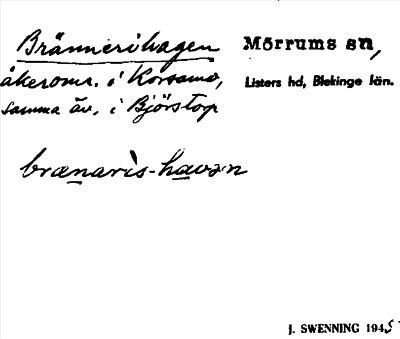 Brännerihagen Mörrums sn,
åkeromr. i Korsamo, Listers hd, Blekinge län.
samma äv. i Björstop
brænaris-havən
J. SWENNING 1945